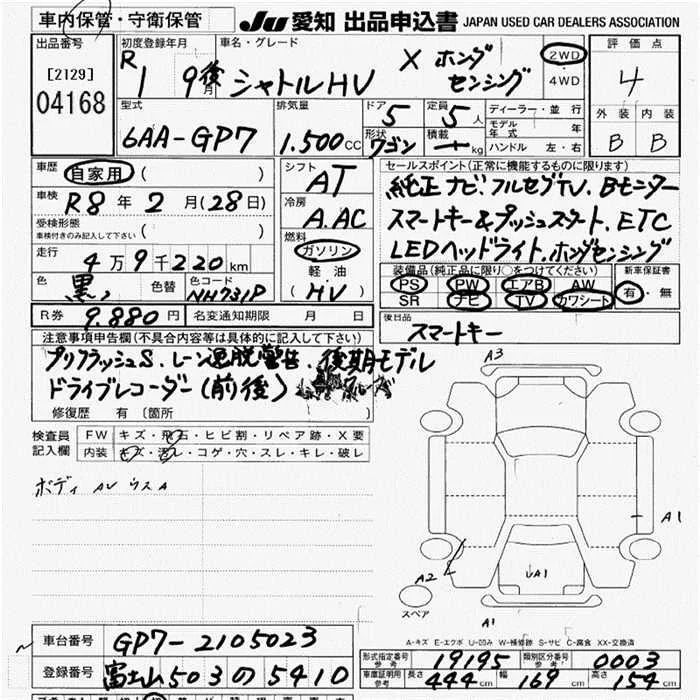 車内保管・守衛保管
JU 愛知 出品申込書 JAPAN USED CAR DEALERS ASSOCIATION
出品番号
[2129]
04168
初度登録年月
R1 9月
車名・グレード
シャトルHV X ホンダセンシング
2WD
・4WD
評価点
4
外装 内装
B B
型式
6AA-GP7
排気量
1.500cc
ドア 5
定員 5人
形状 ワゴン
積載 ー kg
ディーラー・並行
モデル年式 年
ハンドル 左・右
車歴 自家用 ( )
車検 R8年 2月(28日)
受検形態 ( )
車検付きのみ記入して下さい
走行 4万9千220km
色 黒 色替 色コード NH731P
シフト
AT
冷房
A.AC
燃料
ガソリン
軽油
(HV)
セールスポイント(正常に機能するものに限ります)
純正ナビ.フルセグTV.Bモニター
スマートキー&プッシュスタート.ETC
LEDヘッドライト.ホンダセンシング
装備品(純正品に限り○をつけてください)
PS PW エアB AW
SR ナビ TV カワシート
新車保証書
有・無
R券 9.880円 名変通知期限 月 日
後日品
スマートキー
注意事項申告欄(不具合内容等は具体的に記入して下さい)
プリクラッシュS.レーン逸脱警告.後期モデル
ドライブレコーダー(前後)
修復歴 有〔箇所 〕
検査員記入欄
FW キズ・飛石・ヒビ割・リペア跡・X要
内装 キズ・汚レ・コゲ・穴・スレ・キレ・破レ
ボディ AUウスA
A3
A1
A2
UA1
A1
スペア
A-キズ E-エクボ U-凹み W-補修跡 S-サビ C-腐食 XX-交換済
車台番号 GP7-2105023
登録番号 富士山503の5410
形式指定番号 参考 19195 類別区分番号 参考 0003
車庫証明用 参考 長さ 444cm 幅 169cm 高さ 154cm